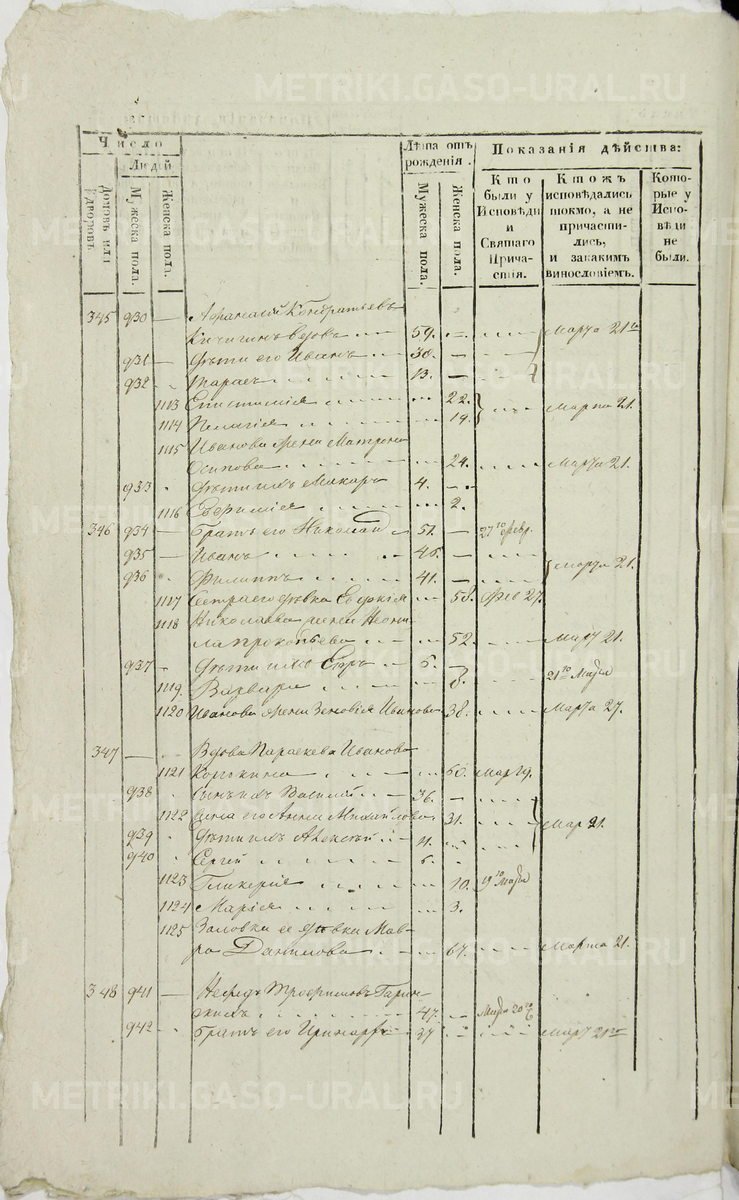 METRIKI.GASO-URAL.RU
Число
Людей
Домовъ или дворовъ.
Мужеска пола.
Женска пола.
Лѣта отъ рожденія.
Мужеска пола.
Женска пола.
Показанія дѣйства:
Кто были у Исповѣди и Святаго Причастія.
Ктожъ исповѣдались токмо, а не причастились, и закакимъ винословіемъ.
Которые у Исповѣди не были.
345 930 — Афанасій Кондратьевъ
59. Марта 21го
931 — дѣти его Иванъ 30. —
932 Тарасъ 13. —
1113 Епистимія 22.
1114 Пелагія 19. Марта 21.
1115 Иванова жена Матрона
Осипова 24. Марта 21.
933 дѣти ихъ Макаръ 4.
1116 Евфимія 2.
346 934 — Братъ его Николай 51. — 27го Февр.
935 — Иванъ 46. —
936 Филиппъ 41. — Марта 21.
1117 Сестра его дѣвка Евдокія 58. Фев 27.
1118 Николаева жена Неони-
ла Прокопьева 52. Март 21.
937 дѣти ихъ Егоръ 6. —
1119 Варвара 8. 21го Марта
1120 Иванова жена Зеновія Иванова 38. Марта 27.
347 — Вдова Параскева Иванова
1121 60. Мар
938 сынъ ихъ Василій 36. —
1122 жена его Михайлова 31. Мар 21.
939 дѣти ихъ Алексѣй 11.
940 Сергей 6.
1123 Гликерія 10. 19го Марта
1124 Марія 3.
1125 Заловка ее дѣвка Мав-
ра Данилова 67. Марта 21.
348 941 — Нефедъ Трофимовъ Гарин-
скихъ 47. — Марта 20го
942 Братъ его Иринархъ 37 Март 21го